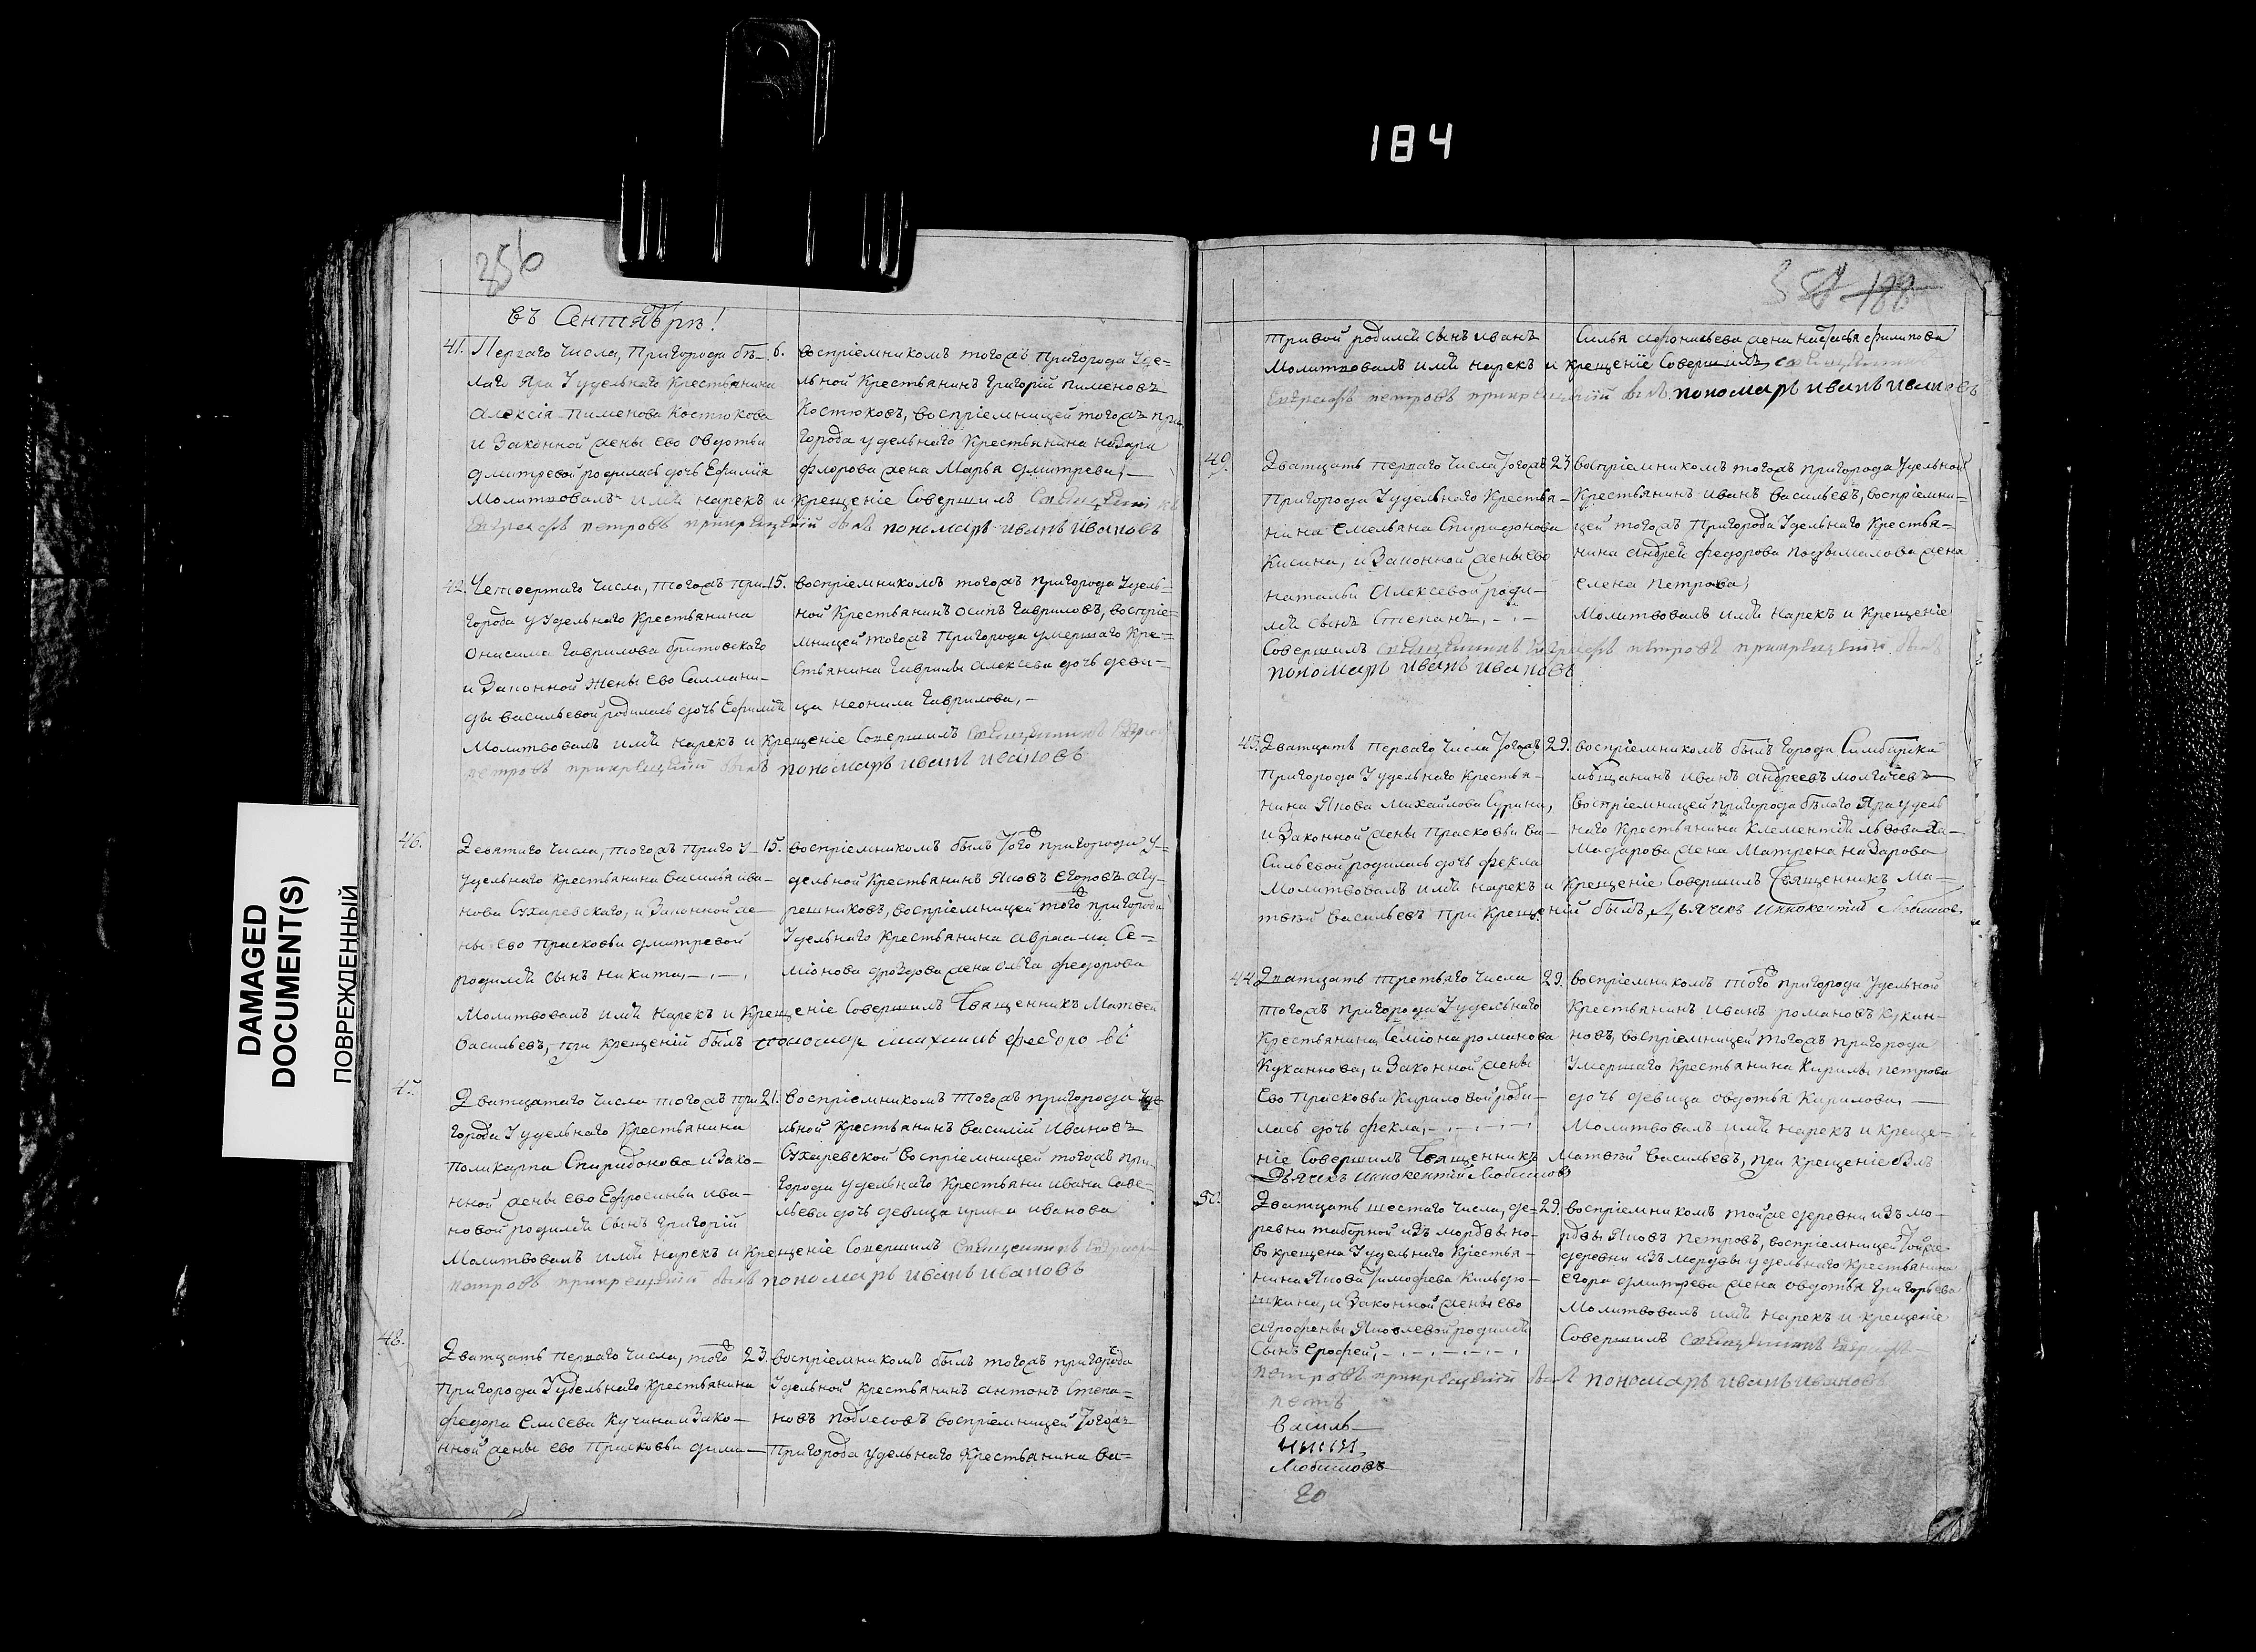 184
DAMAGED
DOCUMENT(S)
ПОВРЕЖДЕННЫЙ
356
въ Сентябрѣ!
41. Перваго числа, пригорода бѣ- 6.
лаго Яра Удельнаго Крестьянина
Алексія пименова Костюкова
и Законной жены ево Овдотьи
дмитревой родилась дочь Ефимія
воспріемникомъ тогожъ пригорода Уде-
льной Крестьянинъ Григорій пименовъ
Костюковъ, воспріемницей тогожъ при
города удельнаго Крестьянина назара
флорова жена Марья дмитрева,
Молитвовалъ имя нарекъ и крещеніе Совершилъ
петровъ при крещеніи былъ пономарь иванъ ивановъ
42. Четвертаго числа, тогожъ при- 15.
города Удельнаго Крестьянина
Онисима Гаврилова
и Законной жены ево Салмани-
ды васильевой родилась дочь Ефимія
воспріемникомъ тогожъ пригорода Удель-
ной Крестьянинъ Осипъ Гавриловъ, воспріе-
мницей тогожъ пригорода умершаго Кре-
стьянина Гаврилы алексева дочь деви-
ца неонила Гаврилова,
Молитвовалъ имя нарекъ и крещеніе Совершилъ
петровъ при крещеніи былъ пономарь иванъ ивановъ
46. Девятаго числа, тогожъ приго 15.
удельнаго крестьянина василья ива-
нова Сухаревскаго, и Законной же-
ны ево прасковьи дмитревой
родился сынъ никита,
воспріемникомъ былъ того пригорода У-
дельной Крестьянинъ Яковъ Егоровъ
воспріемницей того пригорода
Удельнаго Крестьянина авраама Се-
міонова дроздова жена Ольга федорова
Молитвовалъ имя нарекъ и Крещеніе Совершилъ Священникъ Матвей
васильевъ, при крещеніи былъ пономарь федоровъ
47. Дватцатаго числа тогожъ при 21.
города Удельнаго Крестьянина
поликарпа Спиридонова и Зако-
нной жены ево Ефросиньи ива-
новой родился Сынъ григорій
воспріемникомъ тогожъ пригорода Уде-
льной крестьянинъ василій ивановъ
Сухаревской воспріемницей тогожъ при-
города удельнаго Крестьяни ивана Саве-
льева дочь девица ирина иванова
Молитвовалъ имя нарекъ и Крещеніе Совершилъ
петровъ при крещеніи былъ пономарь иванъ ивановъ
48. Дватцать перваго числа, того 23.
пригорода Удельнаго крестьянина
федора Елисева Кучина и Зако-
нной жены ево прасковьи дми-
воспріемникомъ былъ тогожъ пригорода
Удельной крестьянинъ антонъ Степа-
новъ воспріемницей тогожъ
пригорода удельнаго Крестьянина ва-
тривой родился сынъ иванъ
Силья афонасьева жена настасья филипова
Молитвовалъ имя нарекъ и крещеніе Совершилъ
петровъ при крещеніи былъ пономарь иванъ ивановъ
49. Дватцать перваго числа тогожъ 23
пригорода Удельнаго Крестья-
нина Емельяна Спиридонова
Кисина, и Законной жены ево
натальи Алексевой роди-
лся сынъ Степанъ,
воспріемникомъ тогожъ пригорода Удельной
Крестьянинъ иванъ васильевъ, воспріемни-
цей тогожъ пригорода Удельнаго Крестья-
нина андрея федорова жена
елена петрова,
Молитвовалъ имя нарекъ и Крещеніе
Совершилъ петровъ при крещеніи былъ
пономарь иванъ ивановъ
43. Дватцать перваго числа тогожъ 29.
пригорода Удельнаго крестья-
нина Якова Михайлова Сурина,
и Законной жены прасковьи ва-
сильевой родилась дочь фекла
воспріемникомъ былъ города Симбирска
мѣщанинъ иванъ андреевъ
воспріемницей пригорода бѣлаго Яра удель
наго Крестьянина Клементія львова
жена Матрена назарова
Молитвовалъ имя нарекъ и крещеніе Совершилъ Священникъ Ма-
твѣй васильевъ при крещеніи былъ, Дьячекъ Иннокентій Любимовъ
44. Дватцать третьяго числа 29.
тогожъ пригорода Удельнаго
Крестьянина Семіона романова
Куканнова, и Законной жены
ево прасковьи Кириловой роди-
лась дочь фекла,
воспріемникомъ того пригорода Удельной
Крестьянинъ иванъ романовъ Кукан-
новъ, воспріемницей тогожъ пригорода
Умершаго Крестьянина Кирилы петрова
дочь девица овдотья Кирилова,
Молитвовалъ имя нарекъ и Креще-
ніе Совершилъ Священникъ Матвѣй васильевъ, при крещеніе былъ
Дьячекъ Иннокентій Любимовъ
50. Дватцать шестаго числа, де- 29.
ревни таборной изъ мордвы но-
во крещена Удельнаго Крестья-
нина Якова Тимофева Кильдю-
шкина, и Законной жены ево
агрофены Яковлевой родился
Сынъ Ерофей,
воспріемникомъ той же деревни изъ мо-
рдвы Яковъ петровъ, воспріемницей той же
деревни изъ мордвы удельнаго Крестьянина
егора дмитрева жена овдотья григорьева
Молитвовалъ имя нарекъ и крещеніе
Совершилъ
петровъ при крещеніи былъ пономарь иванъ ивановъ
петъ
Василь
Любимовъ
20